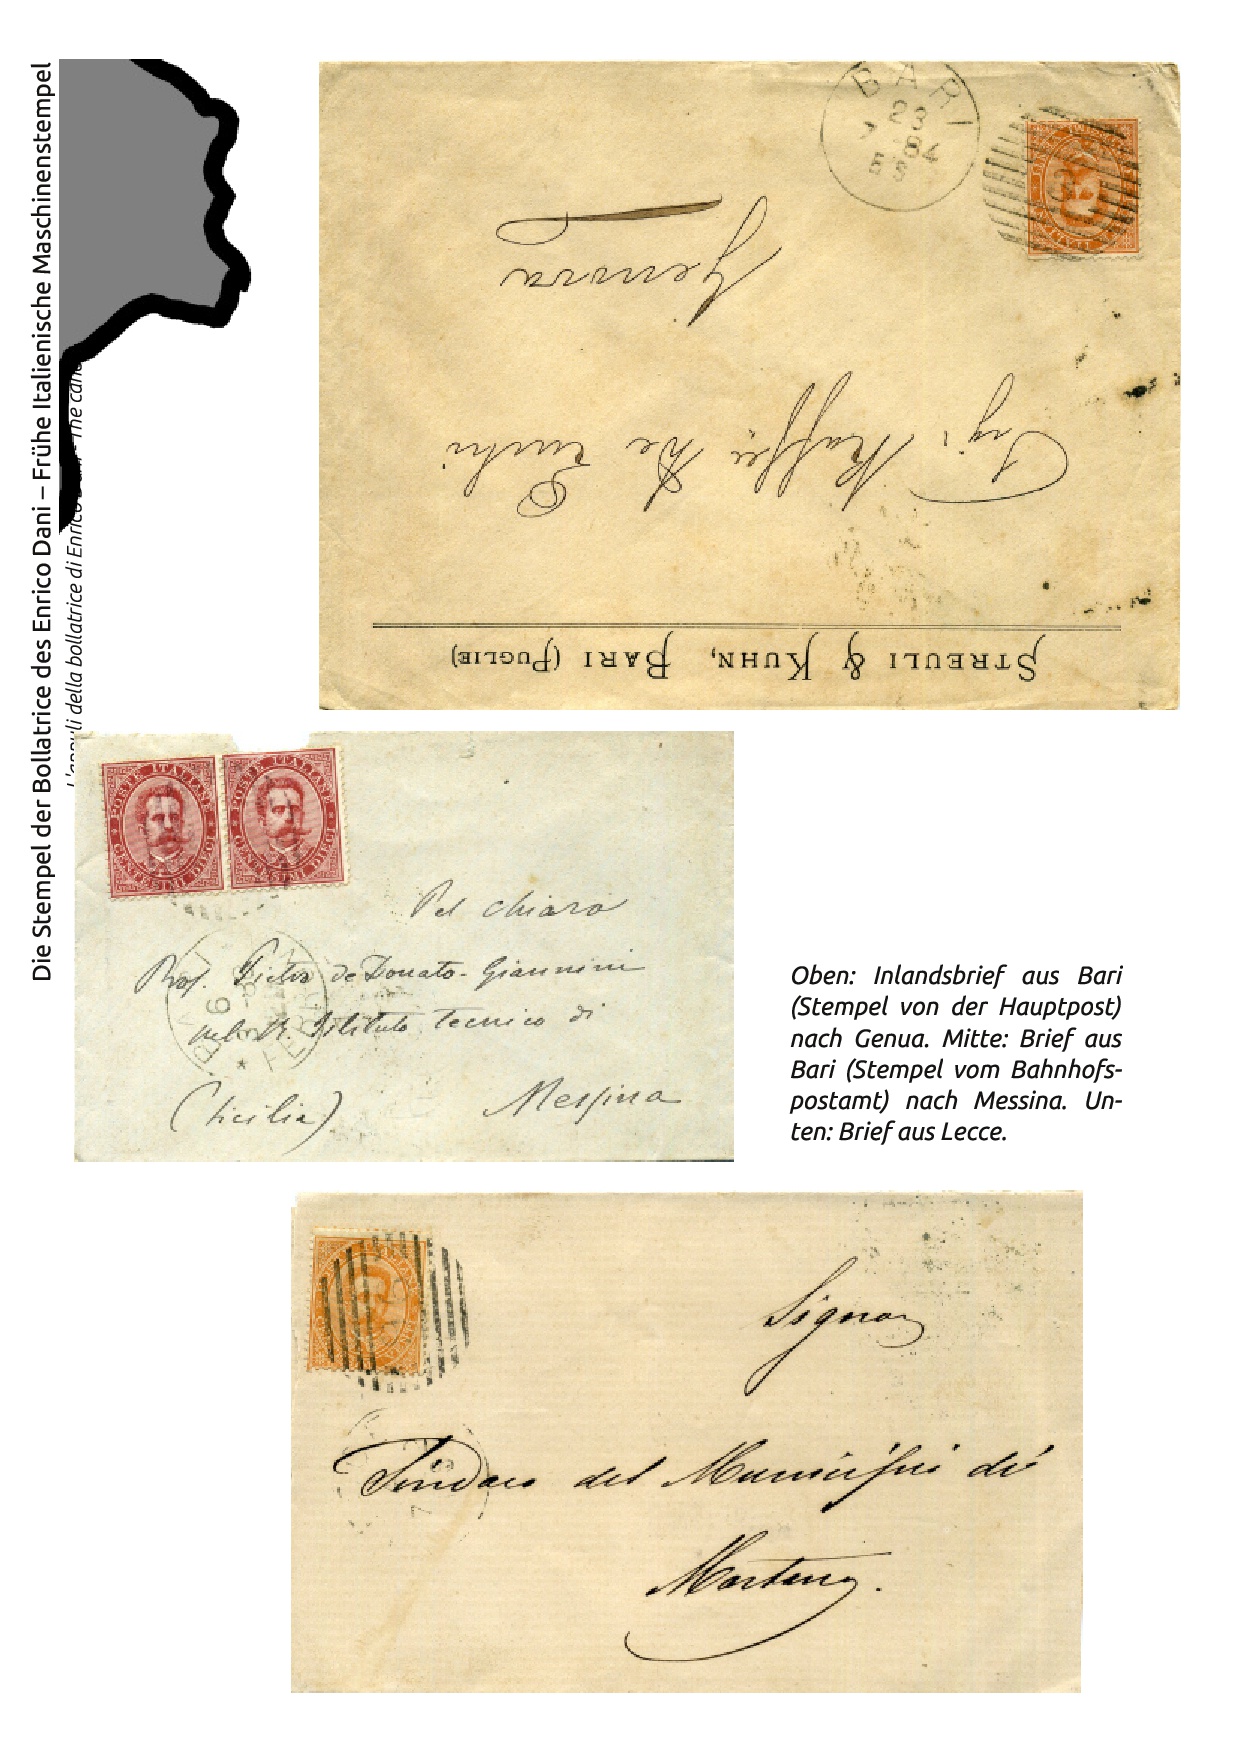 Die Stempel der Bollatrice des Enrico Dani – Frühe Italienische Maschinenstempel
della bollatrice di Enrico
BARI
23
7 84
E S
Genova
STREULI & KUHN, BARI (PUGLIE)
POSTE ITALIANE
CENTESIMI DIECI
POSTE ITALIANE
CENTESIMI DIECI
Pel chiaro
Prof. Pietro de Donato-Giannini
nel R. Istituto Tecnico di
Messina
(Sicilia)
Oben: Inlandsbrief aus Bari
(Stempel von der Hauptpost)
nach Genua. Mitte: Brief aus
Bari (Stempel vom Bahnhofs-
postamt) nach Messina. Un-
ten: Brief aus Lecce.
Signor
Sindaco del Municipio di